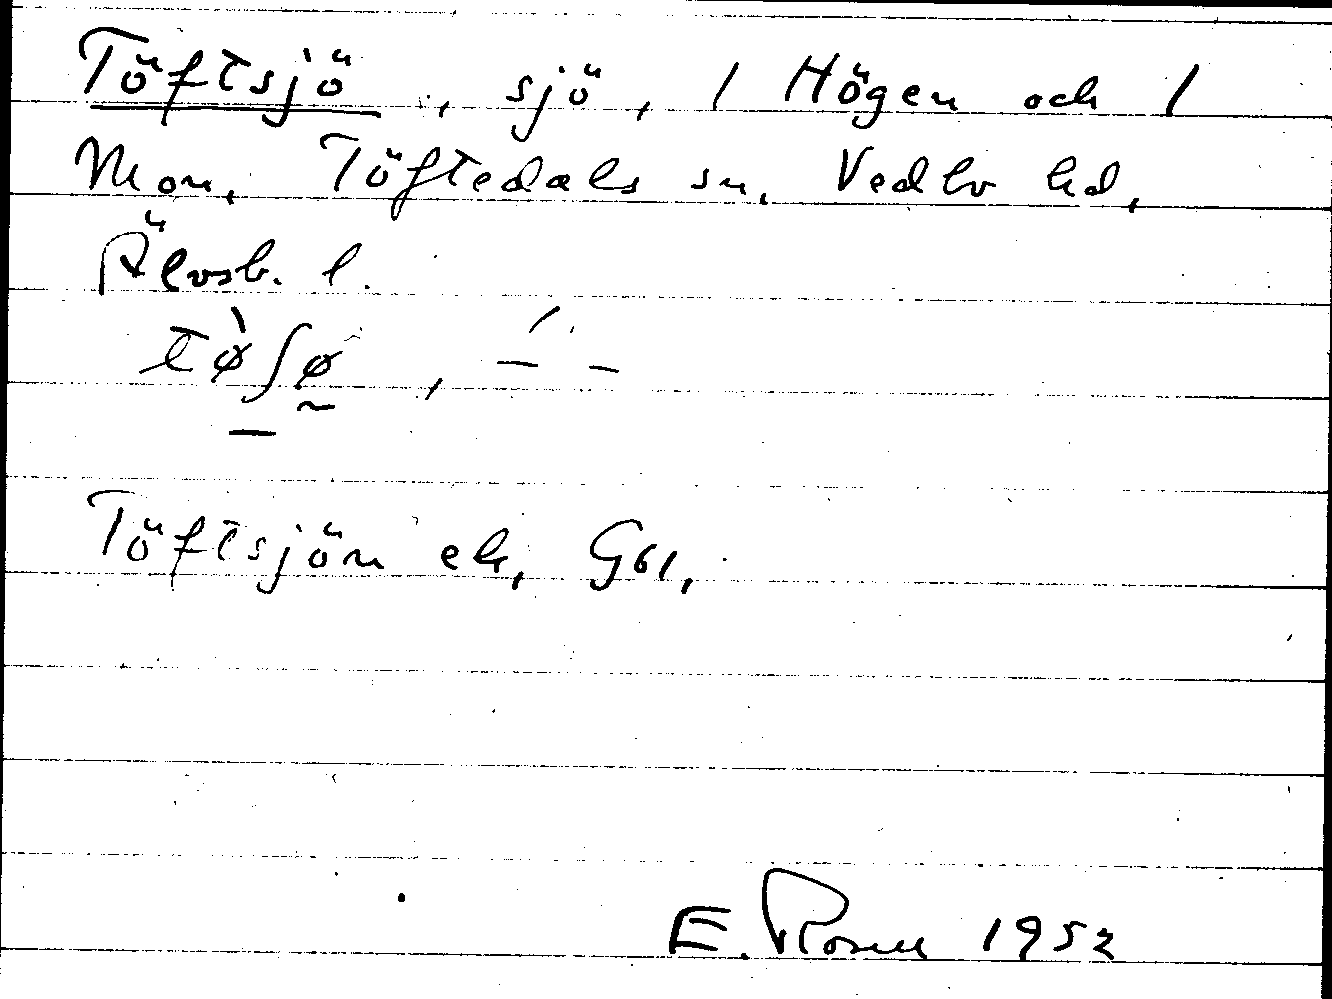 Töftsjö, sjö, 1 Högen och 1
Mon, Töftedals sn, Vedbo hd,
Älvsb. l.
tø̀ʃø, –́ –
Töftsjön ek, G61,
E. Rosen 1952